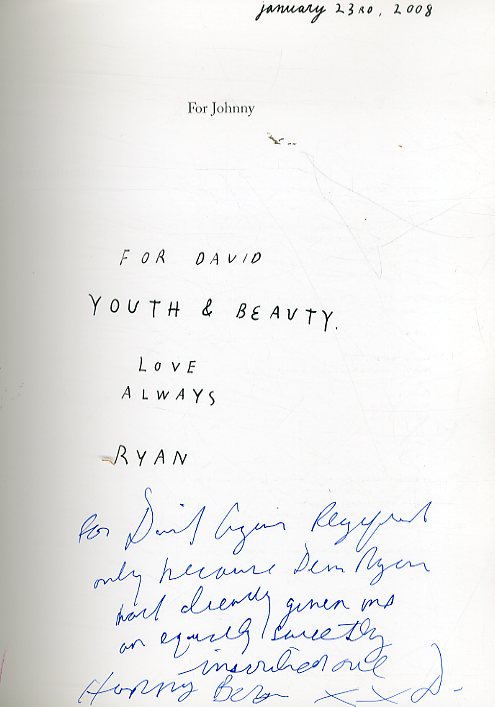 january 23RD, 2008
For Johnny
FOR DAVID
YOUTH & BEAUTY.
LOVE
ALWAYS
RYAN
For David Again
only because Dear Ryan
had already given me
an equally sweetly
inscribed one
Happy X X D.